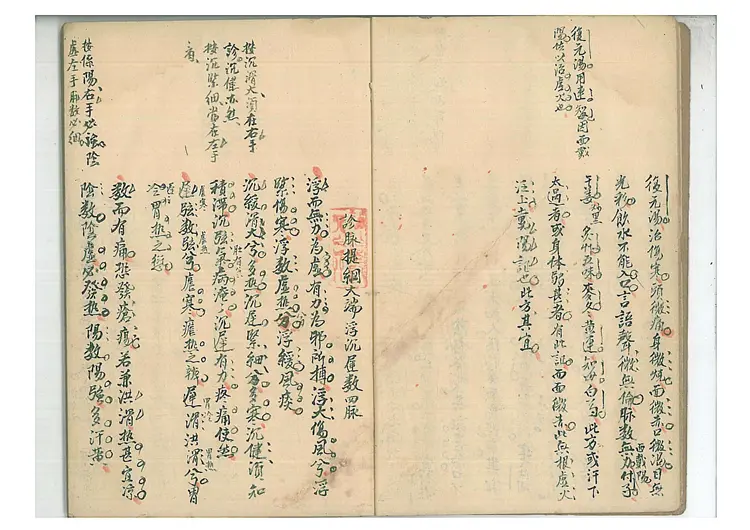 復元湯用連智因西戴
陽佐以治虛火也
復元湯治傷寒頭微痛身微熱面微赤口微渴目無
光彩飲水不能入口言語聲微無倫脉數無力付子
西戴陽
干姜
甘草 五味 麥冬 黄連 知母 白芍 此方或汗下
太過者或身体弱甚者有此証而面皩赤此無根虛火
泛上戴陽証也此方其宜
診脉提綱大端浮沉遲數四脉
浮而無力為虛有力為邪所搏浮大傷風兮浮
緊傷寒浮數虛熱兮浮緩風痰
沉緩滑大兮多熱沉遲緊細兮多寒沉健須知
積滯沉弦氣病沉遲有力疼痛使然
遲弦數弦兮 寒瘧熱之 遲滑洪滑兮胃
虛寒
胃冷
胃熱
冷胃熱之愆
數而有痛恐發瘡瘍若兼洪滑熱甚宜凉
陰數陰虛必發熱陽數陽強多汗黄
按沉滑大須在右手
診沉健亦然
按沉緊細當在左手
看
按係陽右手必強陰
虛左手脉數必細